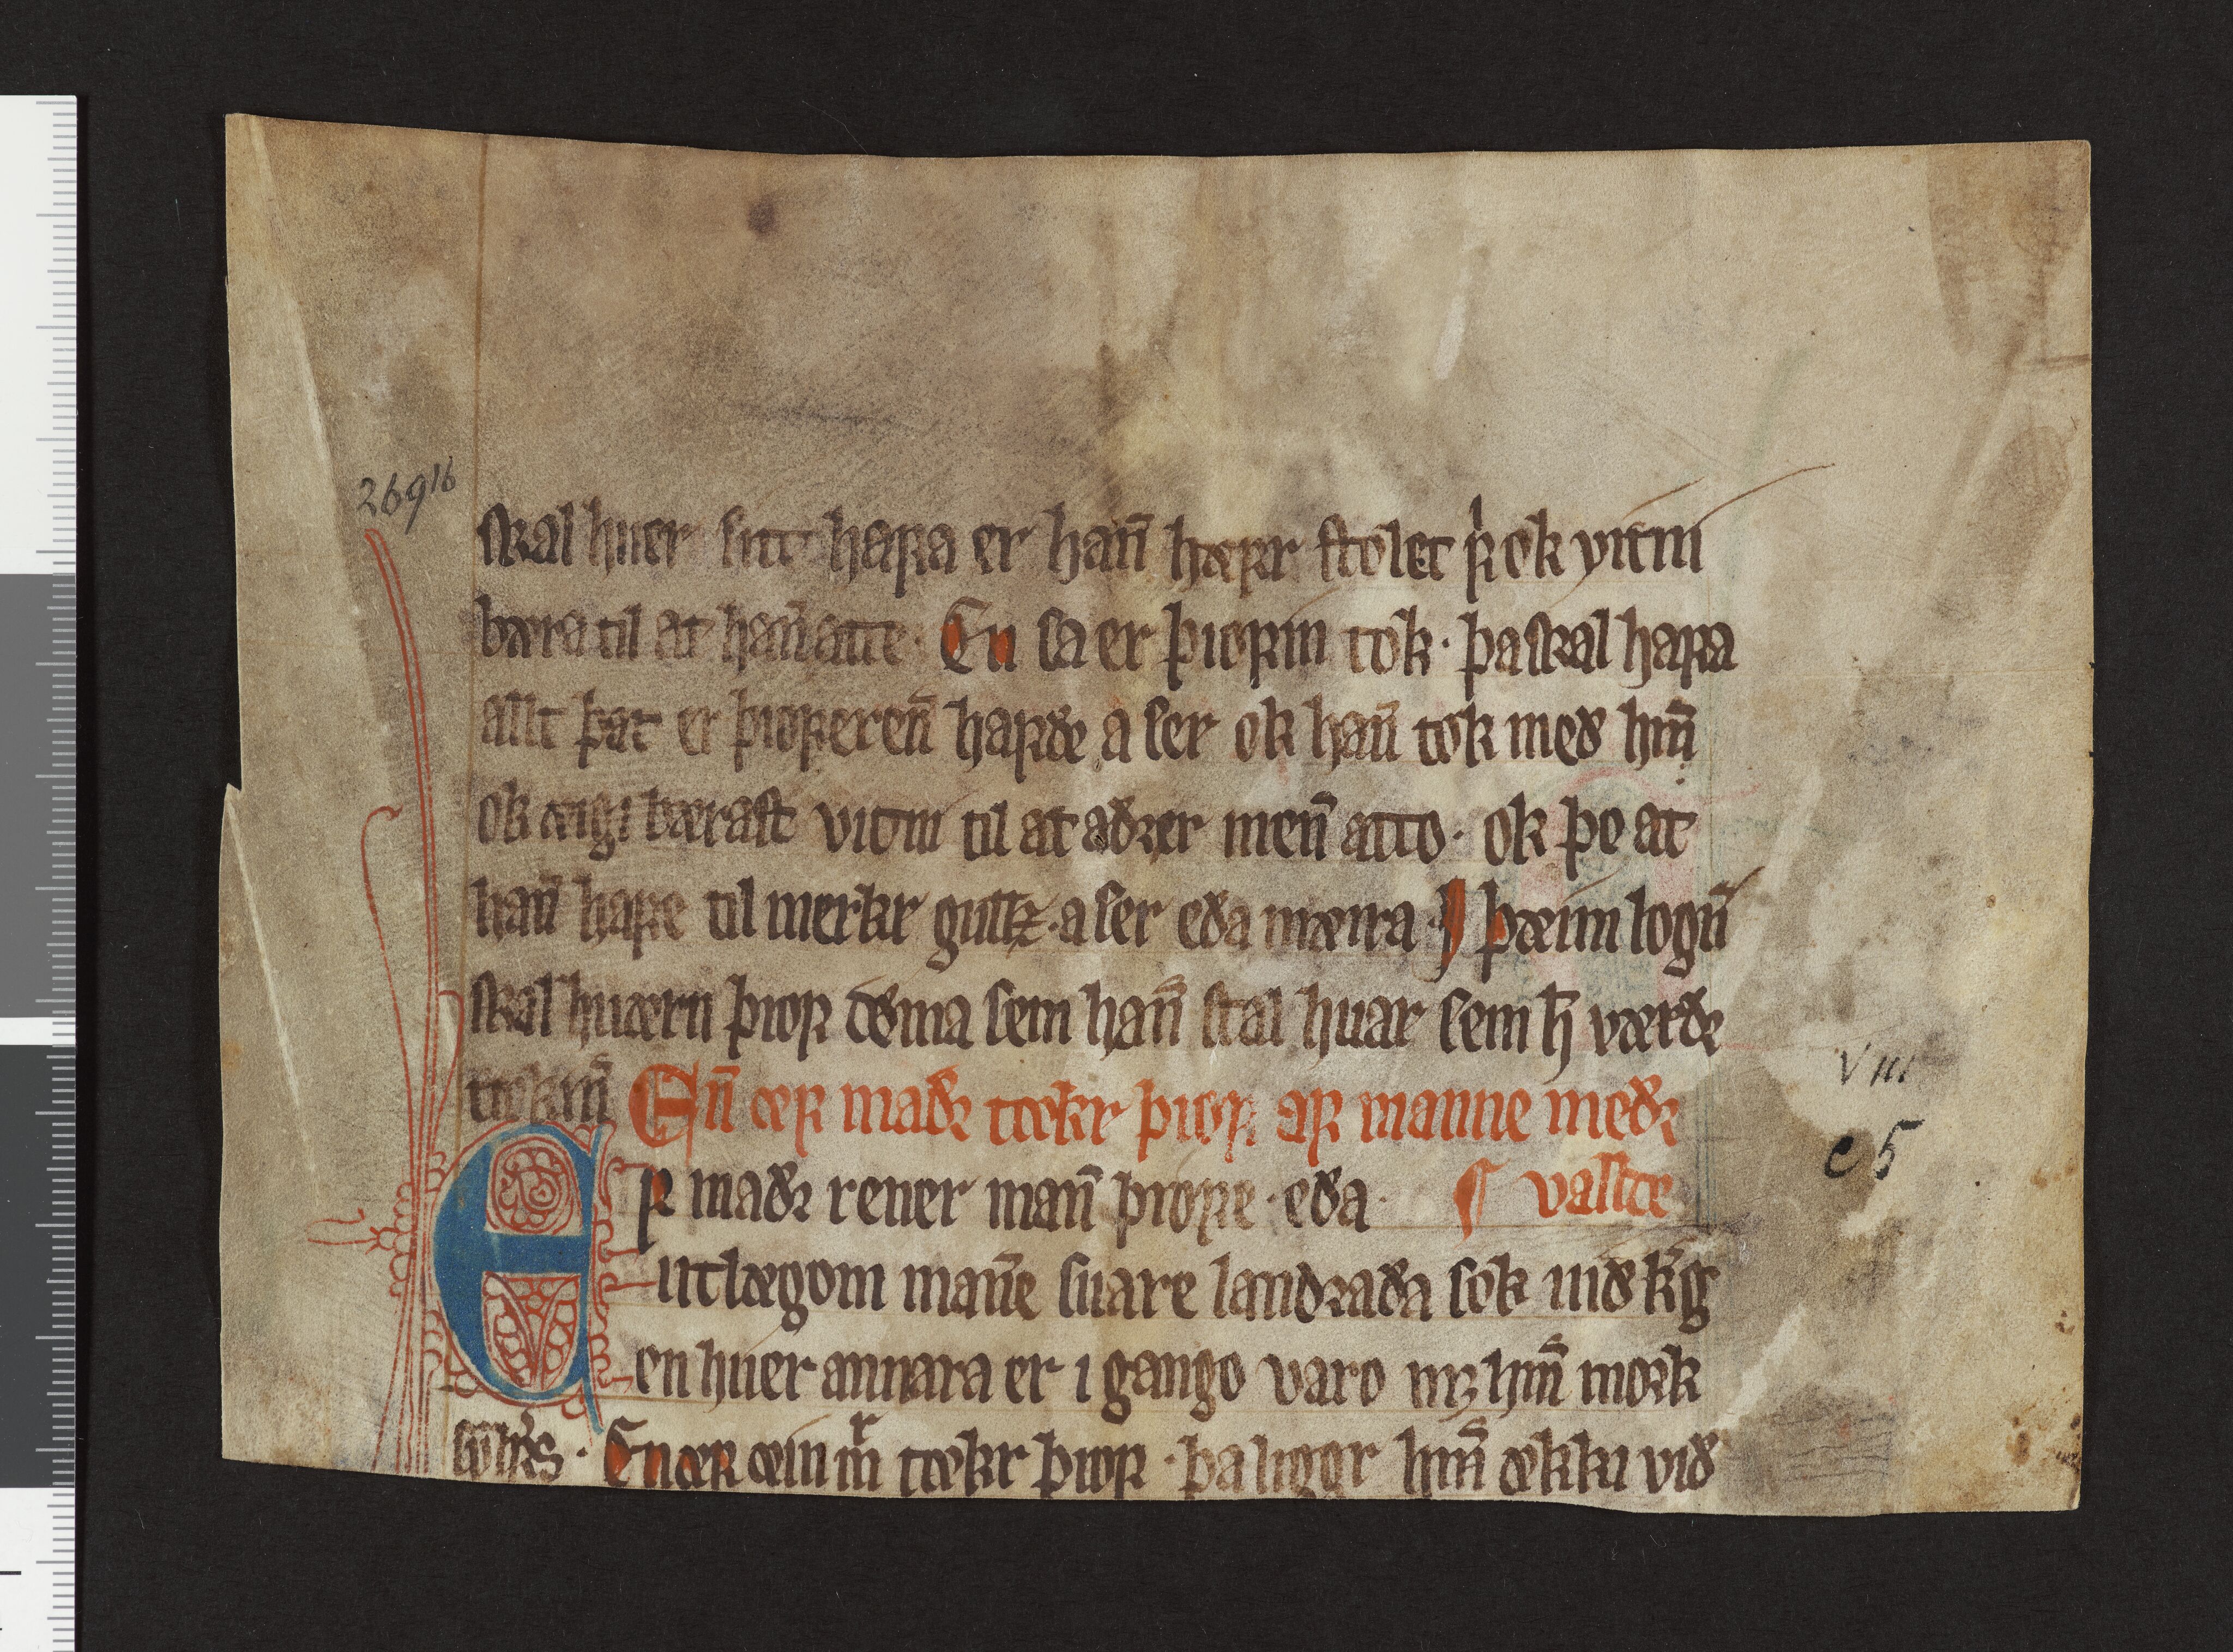 269 16
skal huer sitt hafa er han̄ hæfir stolet fͥ ok vitni
bæra til at han̄ atte · En sa er þiofin tok · þa skal hafa
allt þat er þioferen̄ hafde a ser ok han̄ tok með hm̄
ok æigi bærast vitni til at aðrer men̄ atto · ok þo at
han̄ hafe til merkr gullz · a ser eða mæira · J þæim logū
skal huærn þiof dœma sem han̄ stal huar sem h̄ værðr
tækin̄ En̄ æf maðr tækr þiof af manne meðr
Ef maðr rener man̄ þiofe · eða · ¶ vallde
utlægom man̄e suare landraða sok uið kͦg
en huer annara er i gango varo mꝫ hm̄ mork
silfrs · En æf æin mͬ tækr þiof · þa liggr hm̄ ækki við
VIII
c 5